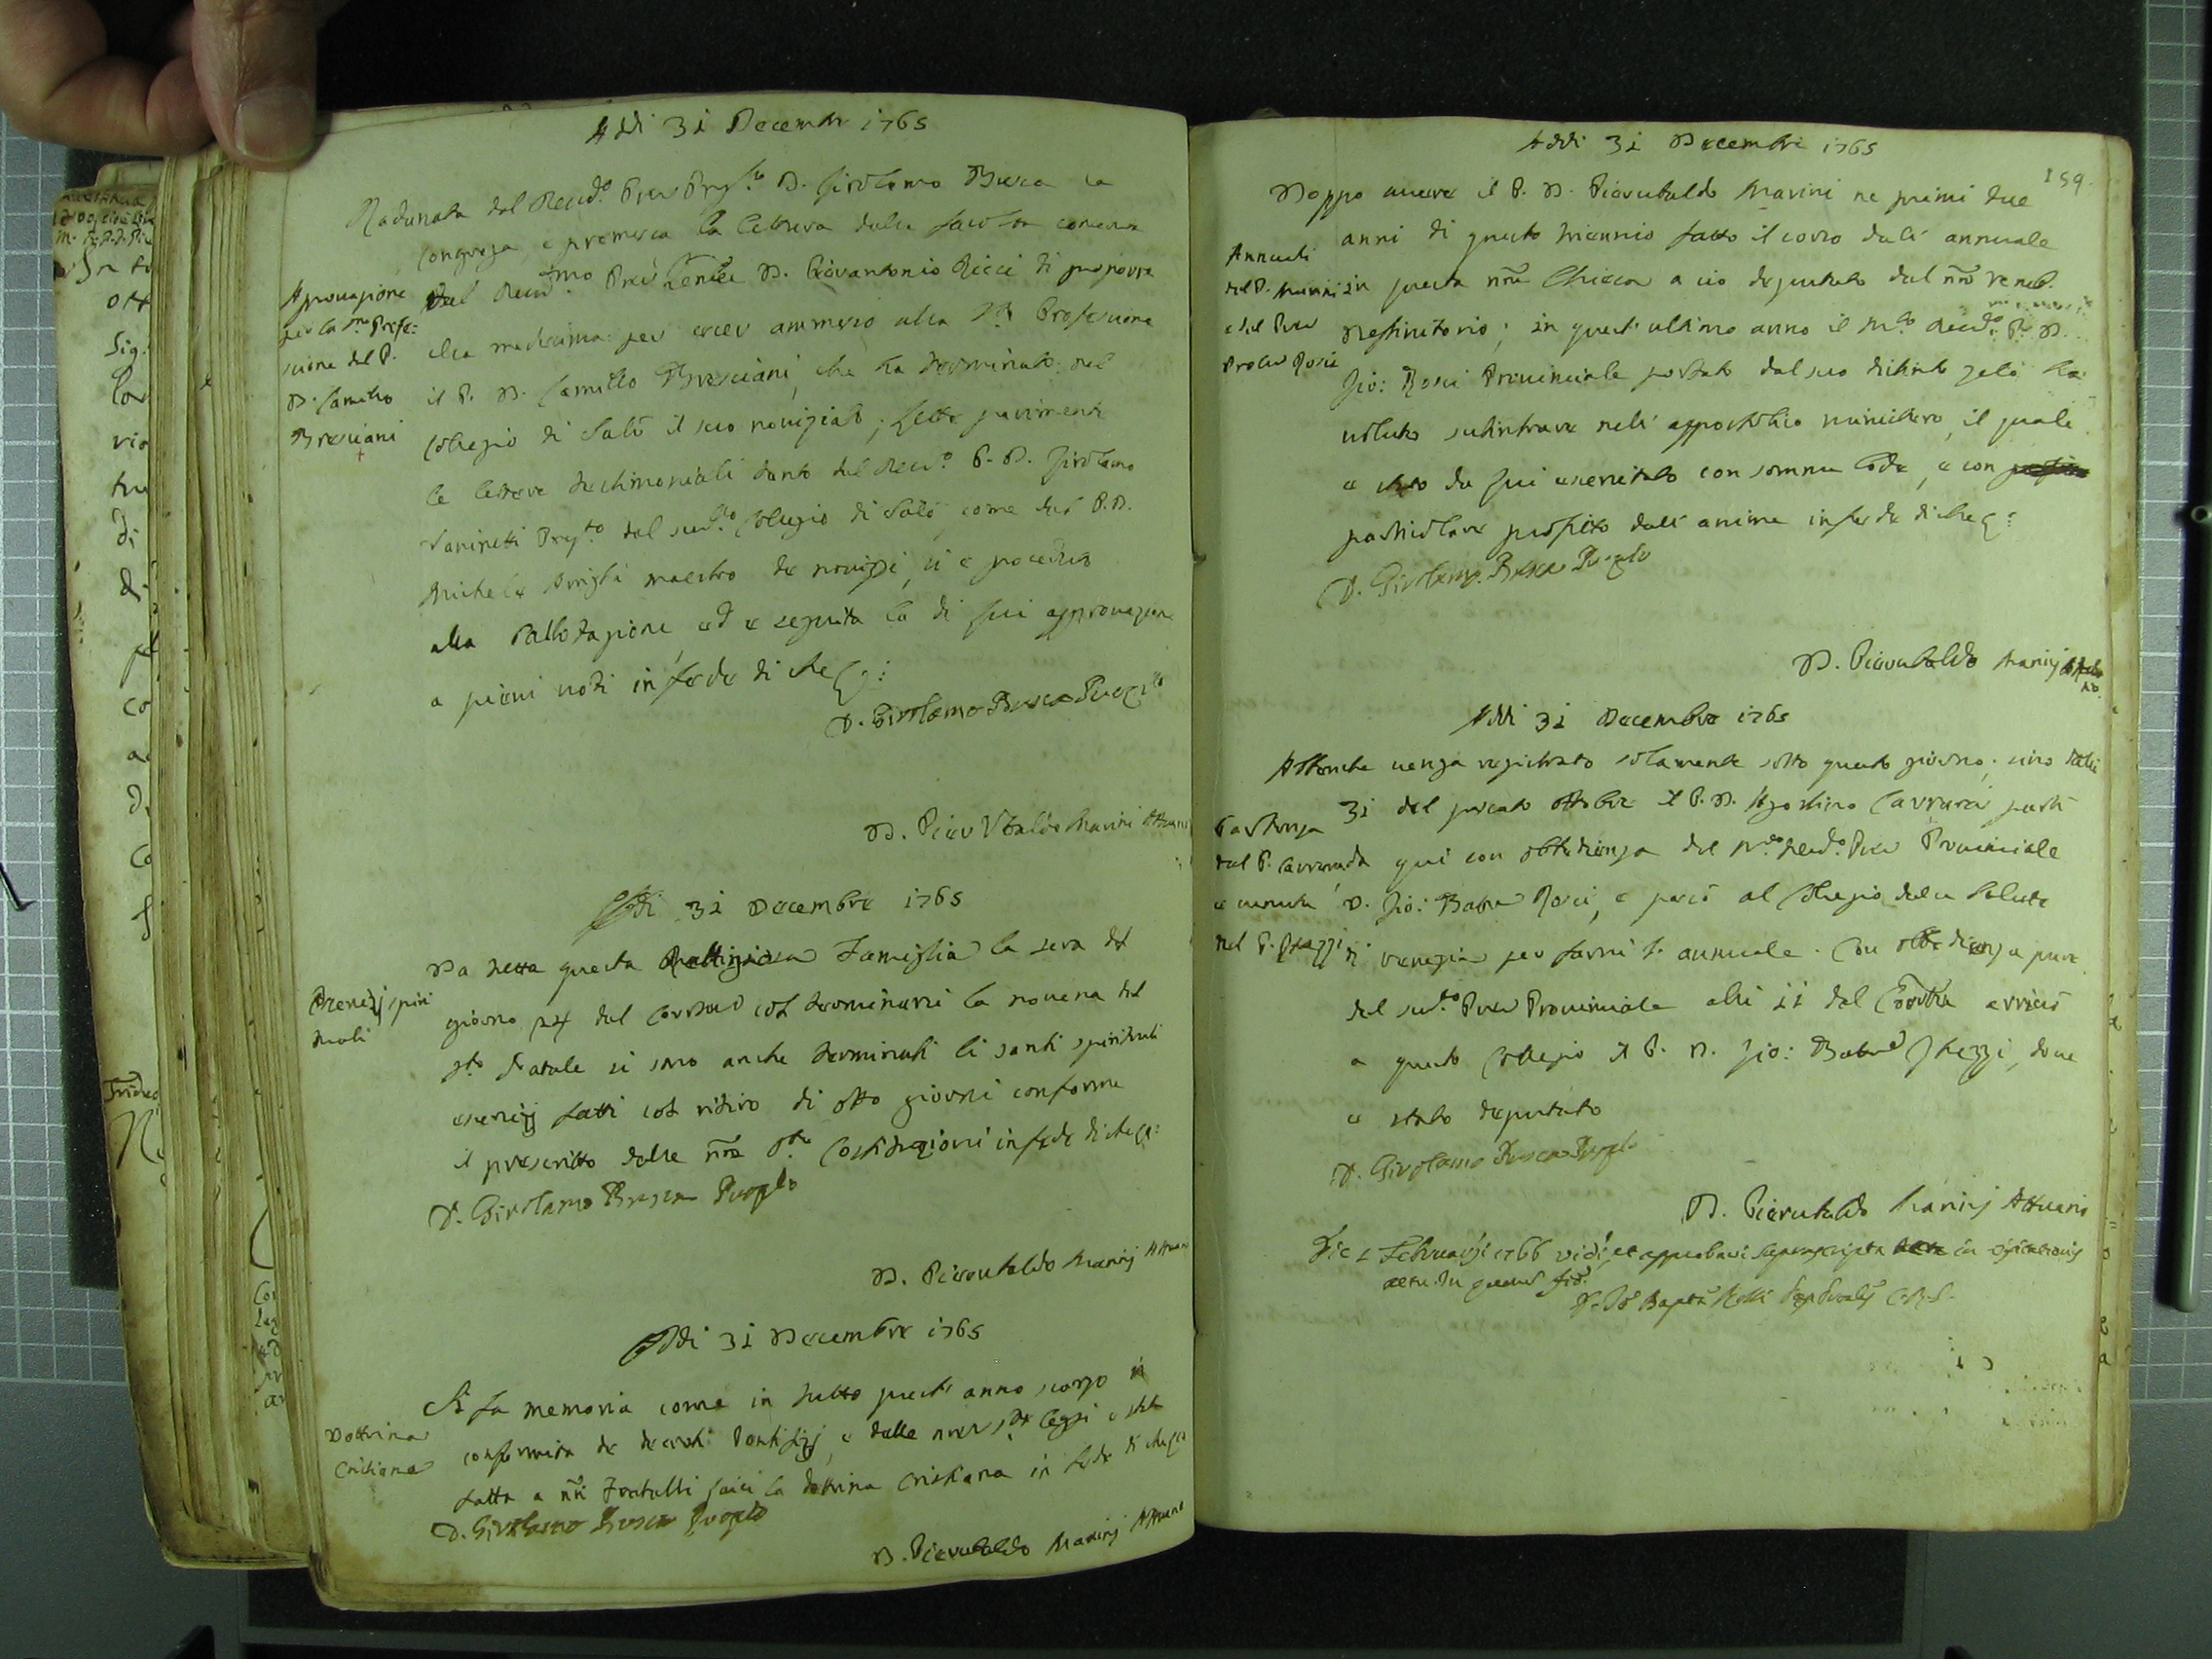 Addi 31 Decembr 1765
Radunata dal Reud.o Prev Prep.to D. Girolamo Busca la
Congrega, e premessa la lettura della facoltà concessa
dal Reud.mo Pre D. Giovantonio Ricci di proporre
Aprouazione
per la s.ta Profes:
sione del P.
D. Camillo
Bresciani
alla medesima per esser ammesso alla s.ta Professione
il P. D. Camillo Bresciani, che ha terminato nel
Collegio di Salò il suo noviziato; lette parimente
le lettere testimoniali tanto del Reud.o P. D. Girolamo
Zaninetti Prep.to del sud.to Collegio di Salò, come del P. D.
Michele maestro de novizi, si è proceduto
alla Ballotazione, ed è seguita la di lui approvazione
a pieni voti in fede di che
D. Girolamo Busca Prep.to
D. Pier Vbaldo Marini Attuario
Addi 31 Decembre 1765
Esercizj spiri
tuali
Da tutta questa Religiosa Famiglia la sera del
giorno 24 del corrente col terminarsi la novena del
S.to Natale si sono anche terminati li santi spirituali
esercizij fatti col ritiro di otto giorni conforme
il prescritto delle nre S.te Costituzioni in fede di che
D. Girolamo Busca Prep.to
D. Pierubaldo Marinj Attuario
Addi 31 Decembre 1765
Dottrina
Cristiana
Si fa memoria come in tutto questo anno scorso in
conformità de decreti Pontifizj, e delle nostre s.te leggi è stata
fatta a nri Fratelli laici la dottrina Cristiana in fede di che
D. Girolamo Busca Prep.to
D. Pierubaldo Marinj Attuario
Addi 31 Decembre 1765
159.
Doppo auere il P. D. Pierubaldo Marini ne primi due
anni di questo triennio fatto il corso dell' annuale
Annuali
del P. Marini
e del Prev
Prov.le Rossi
in questa nra Chiesa a ciò deputato dal nro Vene.
Deffinitorio; in quest' ultimo anno il M.to Reud.o P. D.
Gio: Rossi Provinciale portato dal suo distinto zelo ha
uoluto subintrare nell' appostolico ministero, il quale
è stato da lui esercitato con somma lode, e con
particolare profitto dell' anime in fede di che
D. Girolamo Busca Prep.to
D. Pierubaldo Marinj Attuario
Addi 31 Decembre 1765
Attenche uenga registrato solamente sotto questo giorno; sino dalli
31 del passato ottobre il P. D. Agostino Carrara partì
Partenza
del P. Carrara
e uenuta
del P. Ghezzi
da qui con obbedienza del M.to Reud.o Prev Provinciale
D. Gio: Batta Rossi, e passò al Collegio della Salute
di Venezia per farvi l' annuale. Con obbedienza pure
del sud.to Prev Provinciale alli 11 del Corrente arrivò
a questo Collegio il P. D. Gio: Batta Ghezzi, doue
è stato deputato
D. Girolamo Busca Prep.to
D. Pierubaldo Marinj Attuario
Die 1 Februarij 1766 vidi, et approbavi suprascripta in visitationis
actu. In quorum fid.
D. Jo Bapta C.R.S.